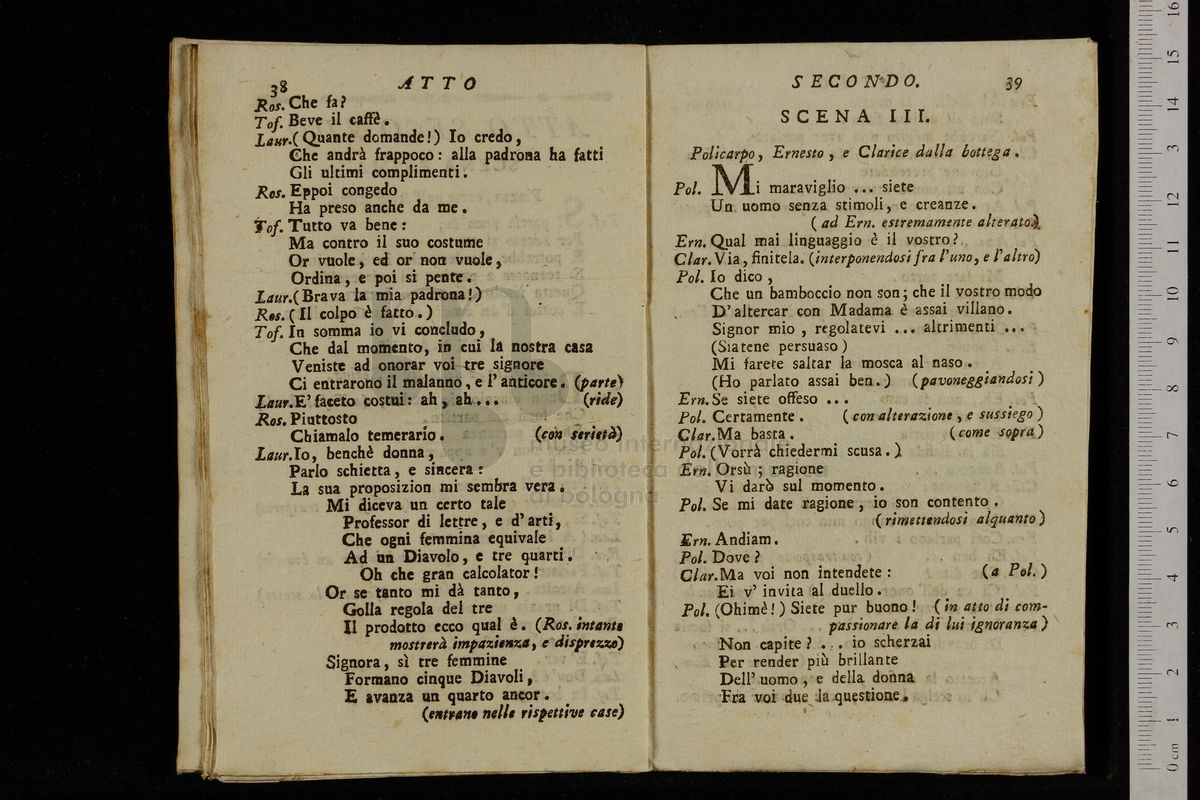 38 ATTO
Ros. Che fa?
Tof. Beve il caffè.
Laur.(Quante domande!) Io credo,
Che andrà frappoco: alla padrona ha fatti
Gli ultimi complimenti.
Ros. Eppoi congedo
Ha preso anche da me.
Tof. Tutto va bene:
Ma contro il suo costume
Or vuole, ed or non vuole,
Ordina, e poi si pente.
Laur.(Brava la mia padrona!)
Ros.(Il colpo è fatto.)
Tof. In somma io vi concludo,
Che dal momento, in cui la nostra casa
Veniste ad onorar voi tre signore
Ci entrarono il malanno, e l' anticore. (parte)
Laur.E' faceto costui: ah, ah... (ride)
Ros. Piuttosto
Chiamalo temerario. (con serietà)
Laur.Io, benchè donna,
Parlo schietta, e sincera:
La sua proposizion mi sembra vera.
Mi diceva un certo tale
Professor di lettre, e d'arti,
Che ogni femmina equivale
Ad un Diavolo, e tre quarti.
Oh che gran calcolator!
Or se tanto mi dà tanto,
Golla regola del tre
Il prodotto ecco qual è. (Ros. intanto
mostrerà impazienza, e disprezzo)
Signora, sì tre femmine
Formano cinque Diavoli,
E avanza un quarto ancor.
(entrano nelle rispettive case)
SECONDO. 39
SCENA III.
Policarpo, Ernesto, e Clarice dalla bottega.
Pol. Mi maraviglio ... siete
Un uomo senza stimoli, e creanze.
(ad Ern. estremamente alterato.)
Ern. Qual mai linguaggio è il vostro?
Clar.Via, finitela. (interponendosi fra l'uno, e l'altro)
Pol. Io dico,
Che un bamboccio non son; che il vostro modo
D'altercar con Madama è assai villano.
Signor mio, regolatevi ... altrimenti ...
(Siatene persuaso)
Mi farete saltar la mosca al naso.
(Ho parlato assai ben.) (pavoneggiandosi)
Ern.Se siete offeso ...
Pol. Certamente. (con alterazione, e sussiego)
Clar.Ma basta. (come sopra)
Pol.(Vorrà chiedermi scusa.)
Ern. Orsù; ragione
Vi darò sul momento.
Pol. Se mi date ragione, io son contento.
(rimettendosi alquanto)
Ern. Andiam.
Pol. Dove?
Clar.Ma voi non intendete: (a Pol.)
Ei v' invita al duello.
Pol. (Ohimè!) Siete pur buono! (in atto di com-
passionare la di lui ignoranza)
Non capite? ... io scherzai
Per render più brillante
Dell' uomo, e della donna
Fra voi due la questione.
museo internazionale
e biblioteca
di bologna
0 cm 1 2 3 4 5 6 7 8 9 10 11 12 13 14 15 16